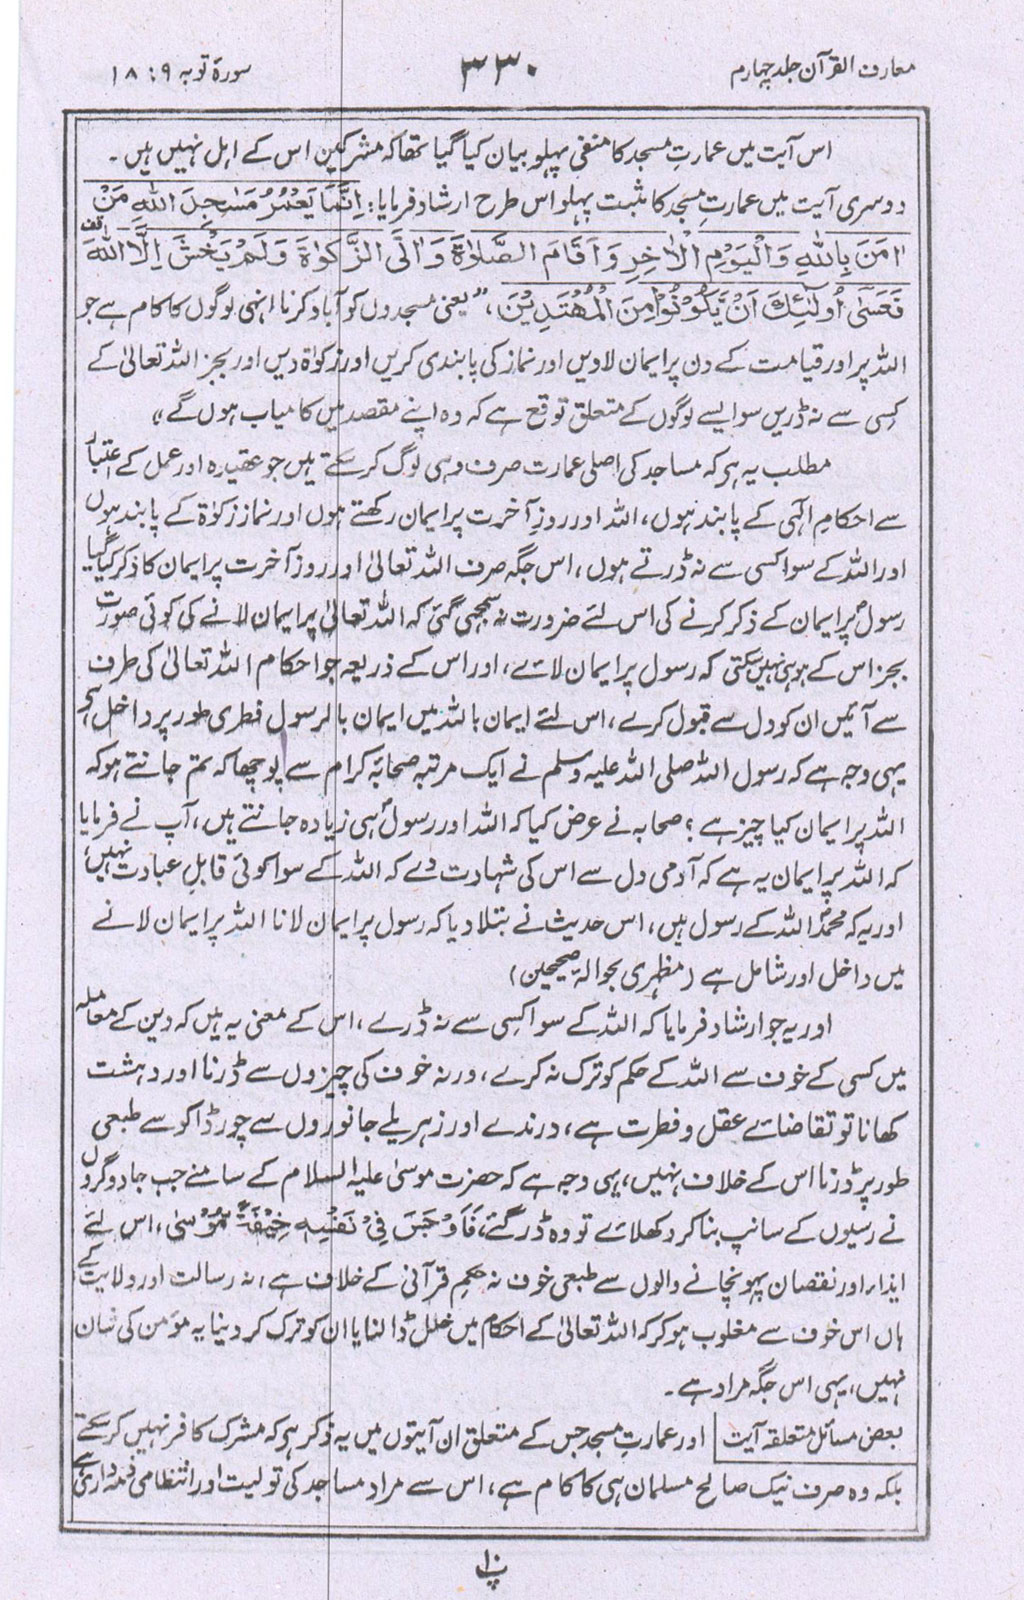 معارف القرآن جلد چہارم
۳۳۰
سورۃ توبہ ۹ : ۱۸
اس آیت میں عمارتِ مسجد کا منفی پہلو بیان کیا گیا تھا کہ مشرکین اس کے اہل نہیں ہیں۔
دوسری آیت میں عمارتِ مسجد کا مثبت پہلو اس طرح ارشاد فرمایا: اِنَّمَا يَعْمُرُ مَسٰجِدَ اللّٰهِ مَنْ
اٰمَنَ بِاللّٰهِ وَالْيَوْمِ الْاٰخِرِ وَاَقَامَ الصَّلٰوةَ وَاٰتَى الزَّكٰوةَ وَلَمْ يَخْشَ اِلَّا اللّٰهَ قف
فَعَسٰٓى اُولٰٓئِكَ اَنْ يَّكُوْنُوْا مِنَ الْمُهْتَدِيْنَ ،" یعنی مسجدوں کو آباد کرنا انہی لوگوں کا کام ہے جو
اللہ پر اور قیامت کے دن پر ایمان لاویں اور نماز کی پابندی کریں اور زکوٰۃ دیں اور بجز اللہ تعالیٰ کے
کسی سے نہ ڈریں سو ایسے لوگوں کے متعلق توقع ہے کہ وہ اپنے مقصد میں کامیاب ہوں گے"
مطلب یہ ہی کہ مساجد کی اصلی عمارت صرف وہی لوگ کرسکتے ہیں جو عقیدہ اور عمل کے اعتبار
سے احکامِ الٰہی کے پابند ہوں، اللہ اور روزِ آخرت پر ایمان رکھتے ہوں اور نماز زکوٰۃ کے پابند ہوں
اور اللہ کے سوا کسی سے نہ ڈرتے ہوں، اس جگہ صرف اللہ تعالیٰ اور روز آخرت پر ایمان کا ذکر کیا گیا
رسولؐ پر ایمان کے ذکر کرنے کی اس لئے ضرورت نہ سمجھی گئی کہ اللہ تعالیٰ پر ایمان لانے کی کوئی صورت
بجز اس کے ہو ہی نہیں سکتی کہ رسول پر ایمان لائے، اور اس کے ذریعہ جو احکام اللہ تعالیٰ کی طرف
سے آئیں ان کو دل سے قبول کرے، اس لئے ایمان باللہ میں ایمان بالرسول فطری طور پر داخل ہی،
یہی وجہ ہے کہ رسول اللہ صلی اللہ علیہ وسلم نے ایک مرتبہ صحابۂ کرام سے پوچھا کہ تم جانتے ہو کہ
اللہ پر ایمان کیا چیز ہے؟ صحابہ نے عرض کیا کہ اللہ اور رسولؐ ہی زیادہ جانتے ہیں، آپ نے فرمایا
کہ اللہ پر ایمان یہ ہے کہ آدمی دل سے اس کی شہادت دے کہ اللہ کے سوا کوئی قابلِ عبادت نہیں،
اور یہ کہ محمدؐ اللہ کے رسول ہیں، اس حدیث نے بتلا دیا کہ رسول پر ایمان لانا اللہ پر ایمان لانے
میں داخل اور شامل ہے (مظہری بحوالہ صحیحین)
اور یہ جو ارشاد فرمایا کہ اللہ کے سوا کسی سے نہ ڈرے، اس کے معنی یہ ہیں کہ دین کے معاملہ
میں کسی کے خوف سے اللہ کے حکم کو ترک نہ کرے، ورنہ خوف کی چیزوں سے ڈرنا اور دہشت
کھانا تو تقاضائے عقل و فطرت ہے، درندے اور زہریلے جانوروں سے چور ڈاکو سے طبعی
طور پر ڈرنا اس کے خلاف نہیں، یہی وجہ ہے کہ حضرت موسیٰ علیہ السلام کے سامنے جب جادوگروں
نے رسیوں کے سانپ بنا کر دکھلائے تو وہ ڈر گئے، فَاَوْجَسَ فِيْ نَفْسِهٖ خِيْفَةً مُّوْسٰى، اس لئے
ایذاء اور نقصان پہونچانے والوں سے طبعی خوف نہ حکمِ قرآنی کے خلاف ہے، نہ رسالت اور ولایت کے،
ہاں اس خوف سے مغلوب ہو کر کہ اللہ تعالیٰ کے احکام میں خلل ڈالنا یا ان کو ترک کر دینا یہ مؤمن کی شان
نہیں، یہی اس جگہ مراد ہے۔
بعض مسائل متعلقہ آیت اور عمارتِ مسجد جس کے متعلق ان آیتوں میں یہ ذکر ہی کہ مشرک کافر نہیں کرسکتے
بلکہ وہ صرف نیک صالح مسلمان ہی کا کام ہے، اس سے مراد مساجد کی تولیت اور انتظامی ذمہ داری ہے